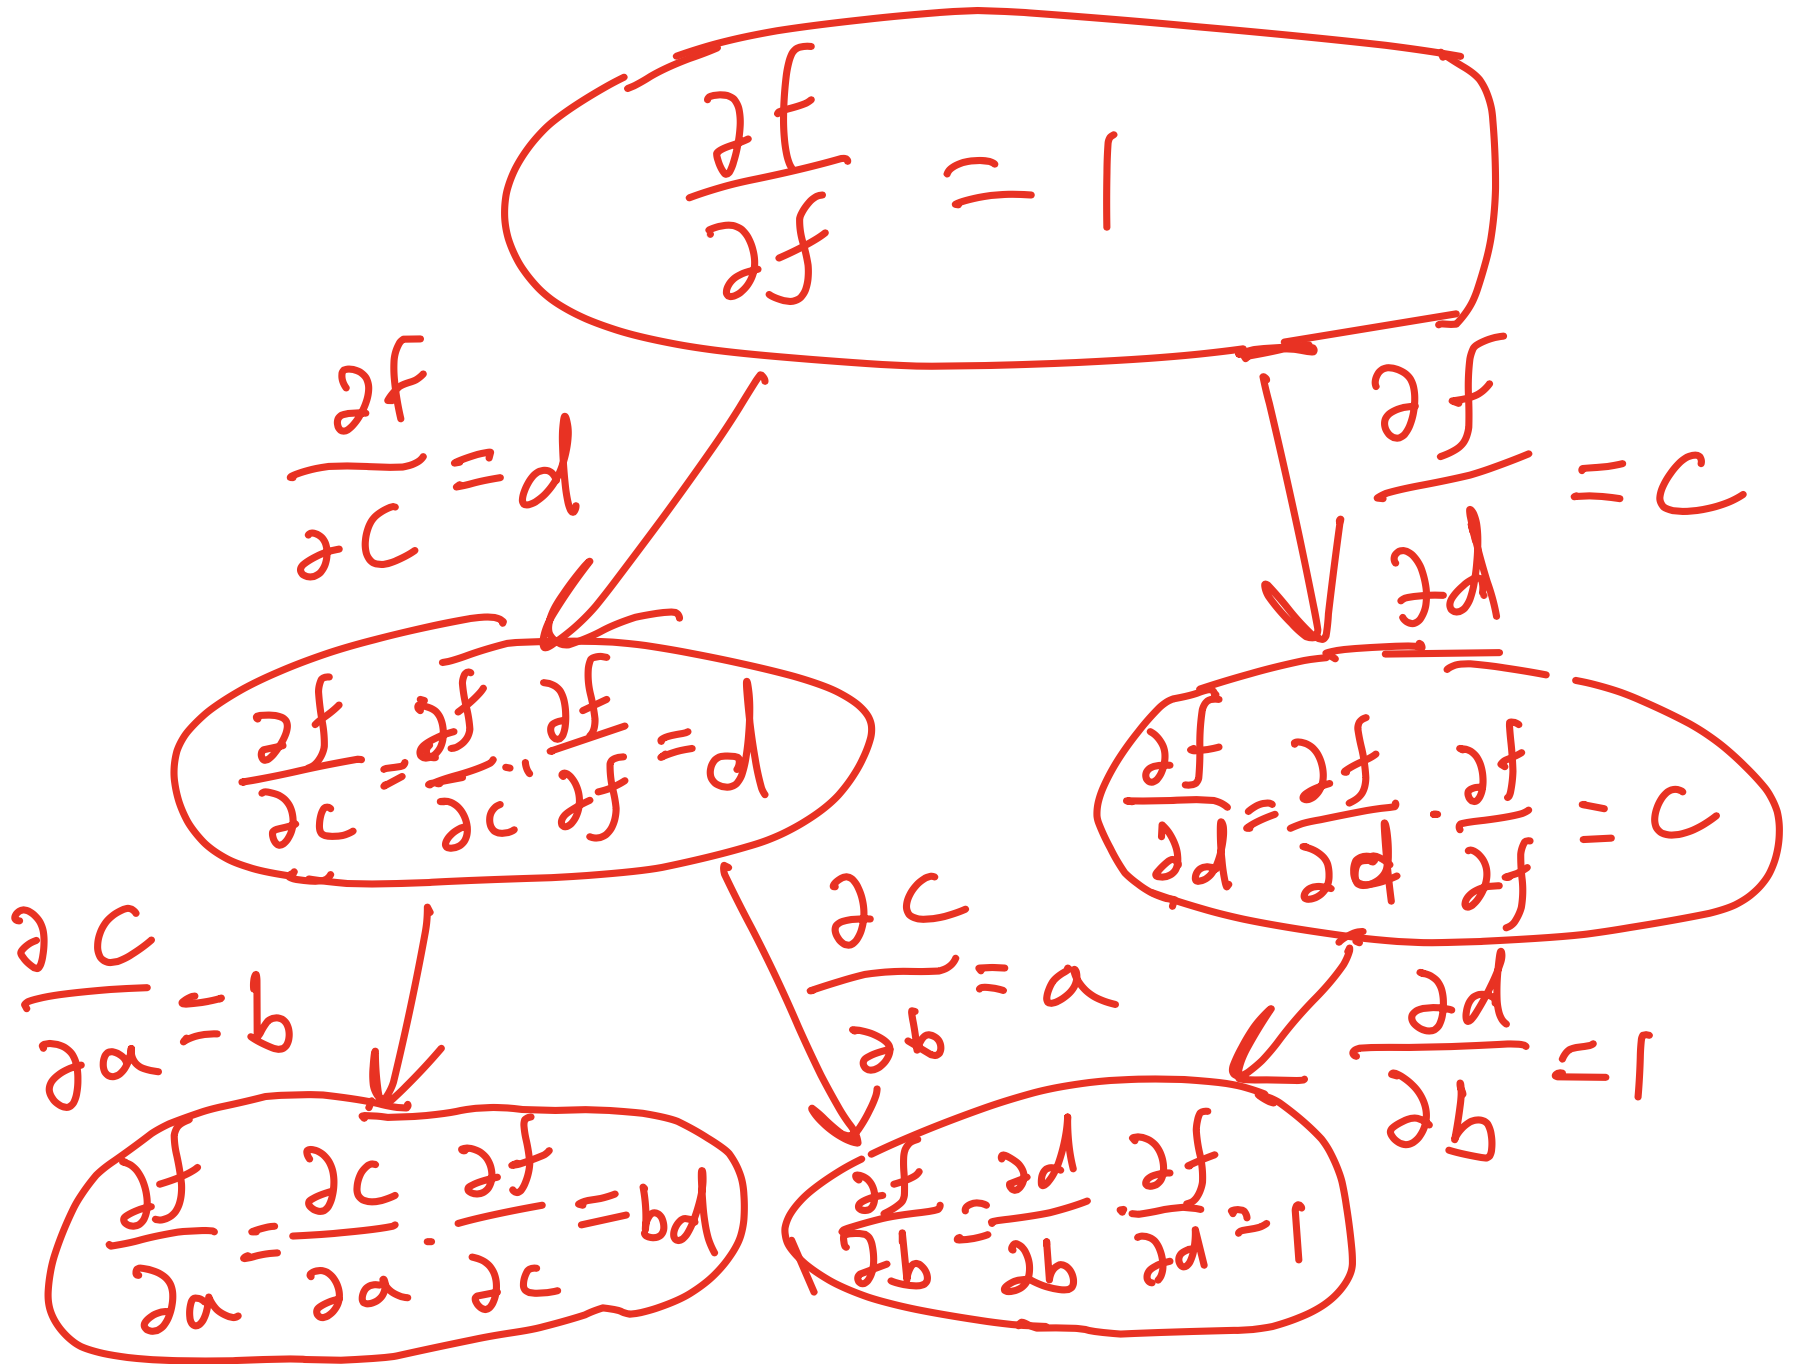 ∂f/∂f = 1
∂f/∂c = d
∂f/∂d = c
∂f/∂c = ∂f/∂c · ∂f/∂f = d
∂f/∂d = ∂f/∂d · ∂f/∂f = c
∂c/∂a = b
∂c/∂b = a
∂d/∂b = 1
∂f/∂a = ∂c/∂a · ∂f/∂c = bd
∂f/∂b = ∂d/∂b · ∂f/∂d = 1